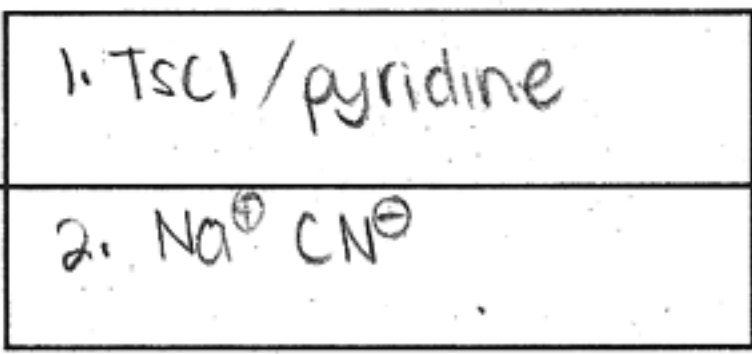 1. TsCl/pyridine
2. Na⊕ CN⊖